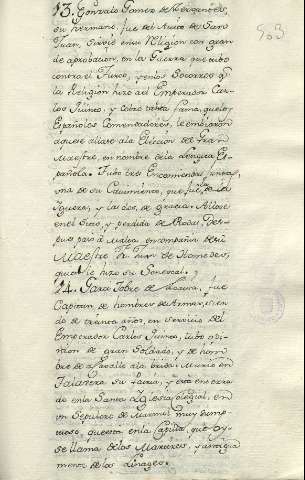 13. Gonzalo Gomez de Cervantes,
su hermano, fue del Avito de San
Juan, sirvió en su Religion con gran
de aprobacion, en la Guerra que tubo
contra el Turco, y en los Socorros q.
la Religion hizo al Emperador Car
los Quinto, y cobró tanta fama, que los
Españoles Comendadores, le embiaron
á que se allase a la Eleccion del Gran
Maestre, en nombre de la Lengua Es
pañola. Tubo tres Encomiendas juntas,
una de su Cavimiento, que fue la de la
Higuera, y las dos, de gracia. Allose
en el Sitio, y perdida de Rodas, Des-
pues pasó a Malta en compañia del
Maestre Fr. Juan de Homedes,
qual le hizo su Senescal.
14. Garci Tobre de, fue
Capitan de hombres de Armas, sien
do de treinta años, en servicio del
Emperador Carlos Quinto, tubo opi
nion de gran Soldado, y de hom
bre de Murió en
Talavera su Patria, y está enterra
do en la Santa Iglesia Colegial, en
un Sepulcro de Marmol muy sump
tuoso, que está en la Capilla, que oy
se llama de los, y antigua
mente de los Linages.